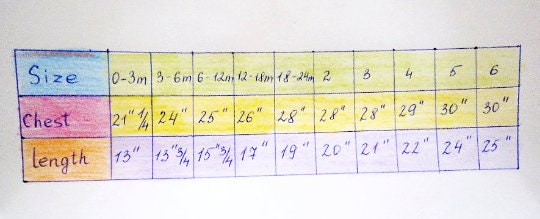 Size 0-3m 3-6m 6-12m 12-18m 18-24m 2 3 4 5 6
Chest 21" 1/4 24" 25" 26" 28" 28" 28" 29" 30" 30"
Length 13" 13"3/4 15"3/4 17" 19" 20" 21" 22" 24" 25"